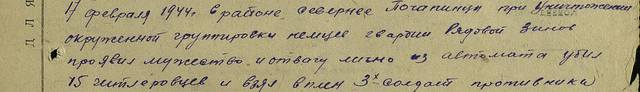 17 февраля 1944г в районе севернее Почапинци при уничтожении
окруженной группировки немцев гвардии Рядовой Зинов
проявил мужество и отвагу лично из автомата убил
15 гитлеровцев и взял в плен 3х солдат противника